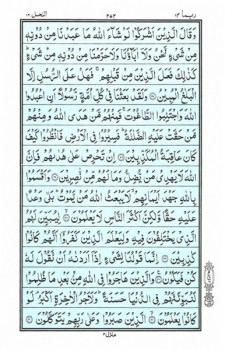 النحل ١٦
ربما ١٤
وَقَالَ الَّذِينَ أَشْرَكُوا لَوْ شَاءَ اللَّهُ مَا عَبَدْنَا مِنْ دُونِهِ
مِنْ شَيْءٍ نَحْنُ وَلَا آبَاؤُنَا وَلَا حَرَّمْنَا مِنْ دُونِهِ مِنْ شَيْءٍ
كَذَلِكَ فَعَلَ الَّذِينَ مِنْ قَبْلِهِمْ فَهَلْ عَلَى الرُّسُلِ إِلَّا
الْبَلَاغُ الْمُبِينُ وَلَقَدْ بَعَثْنَا فِي كُلِّ أُمَّةٍ رَسُولًا أَنِ اعْبُدُوا
اللَّهَ وَاجْتَنِبُوا الطَّاغُوتَ فَمِنْهُمْ مَنْ هَدَى اللَّهُ وَمِنْهُمْ
مَنْ حَقَّتْ عَلَيْهِ الضَّلَالَةُ فَسِيرُوا فِي الْأَرْضِ فَانْظُرُوا كَيْفَ
كَانَ عَاقِبَةُ الْمُكَذِّبِينَ إِنْ تَحْرِصْ عَلَى هُدَاهُمْ فَإِنَّ
اللَّهَ لَا يَهْدِي مَنْ يُضِلُّ وَمَا لَهُمْ مِنْ نَاصِرِينَ وَأَقْسَمُوا
بِاللَّهِ جَهْدَ أَيْمَانِهِمْ لَا يَبْعَثُ اللَّهُ مَنْ يَمُوتُ بَلَى وَعْدًا
عَلَيْهِ حَقًّا وَلَكِنَّ أَكْثَرَ النَّاسِ لَا يَعْلَمُونَ لِيُبَيِّنَ لَهُمُ
الَّذِي يَخْتَلِفُونَ فِيهِ وَلِيَعْلَمَ الَّذِينَ كَفَرُوا أَنَّهُمْ كَانُوا
كَاذِبِينَ إِنَّمَا قَوْلُنَا لِشَيْءٍ إِذَا أَرَدْنَاهُ أَنْ نَقُولَ لَهُ
كُنْ فَيَكُونُ وَالَّذِينَ هَاجَرُوا فِي اللَّهِ مِنْ بَعْدِ مَا ظُلِمُوا
لَنُبَوِّئَنَّهُمْ فِي الدُّنْيَا حَسَنَةً وَلَأَجْرُ الْآخِرَةِ أَكْبَرُ لَوْ
كَانُوا يَعْلَمُونَ الَّذِينَ صَبَرُوا وَعَلَى رَبِّهِمْ يَتَوَكَّلُونَ